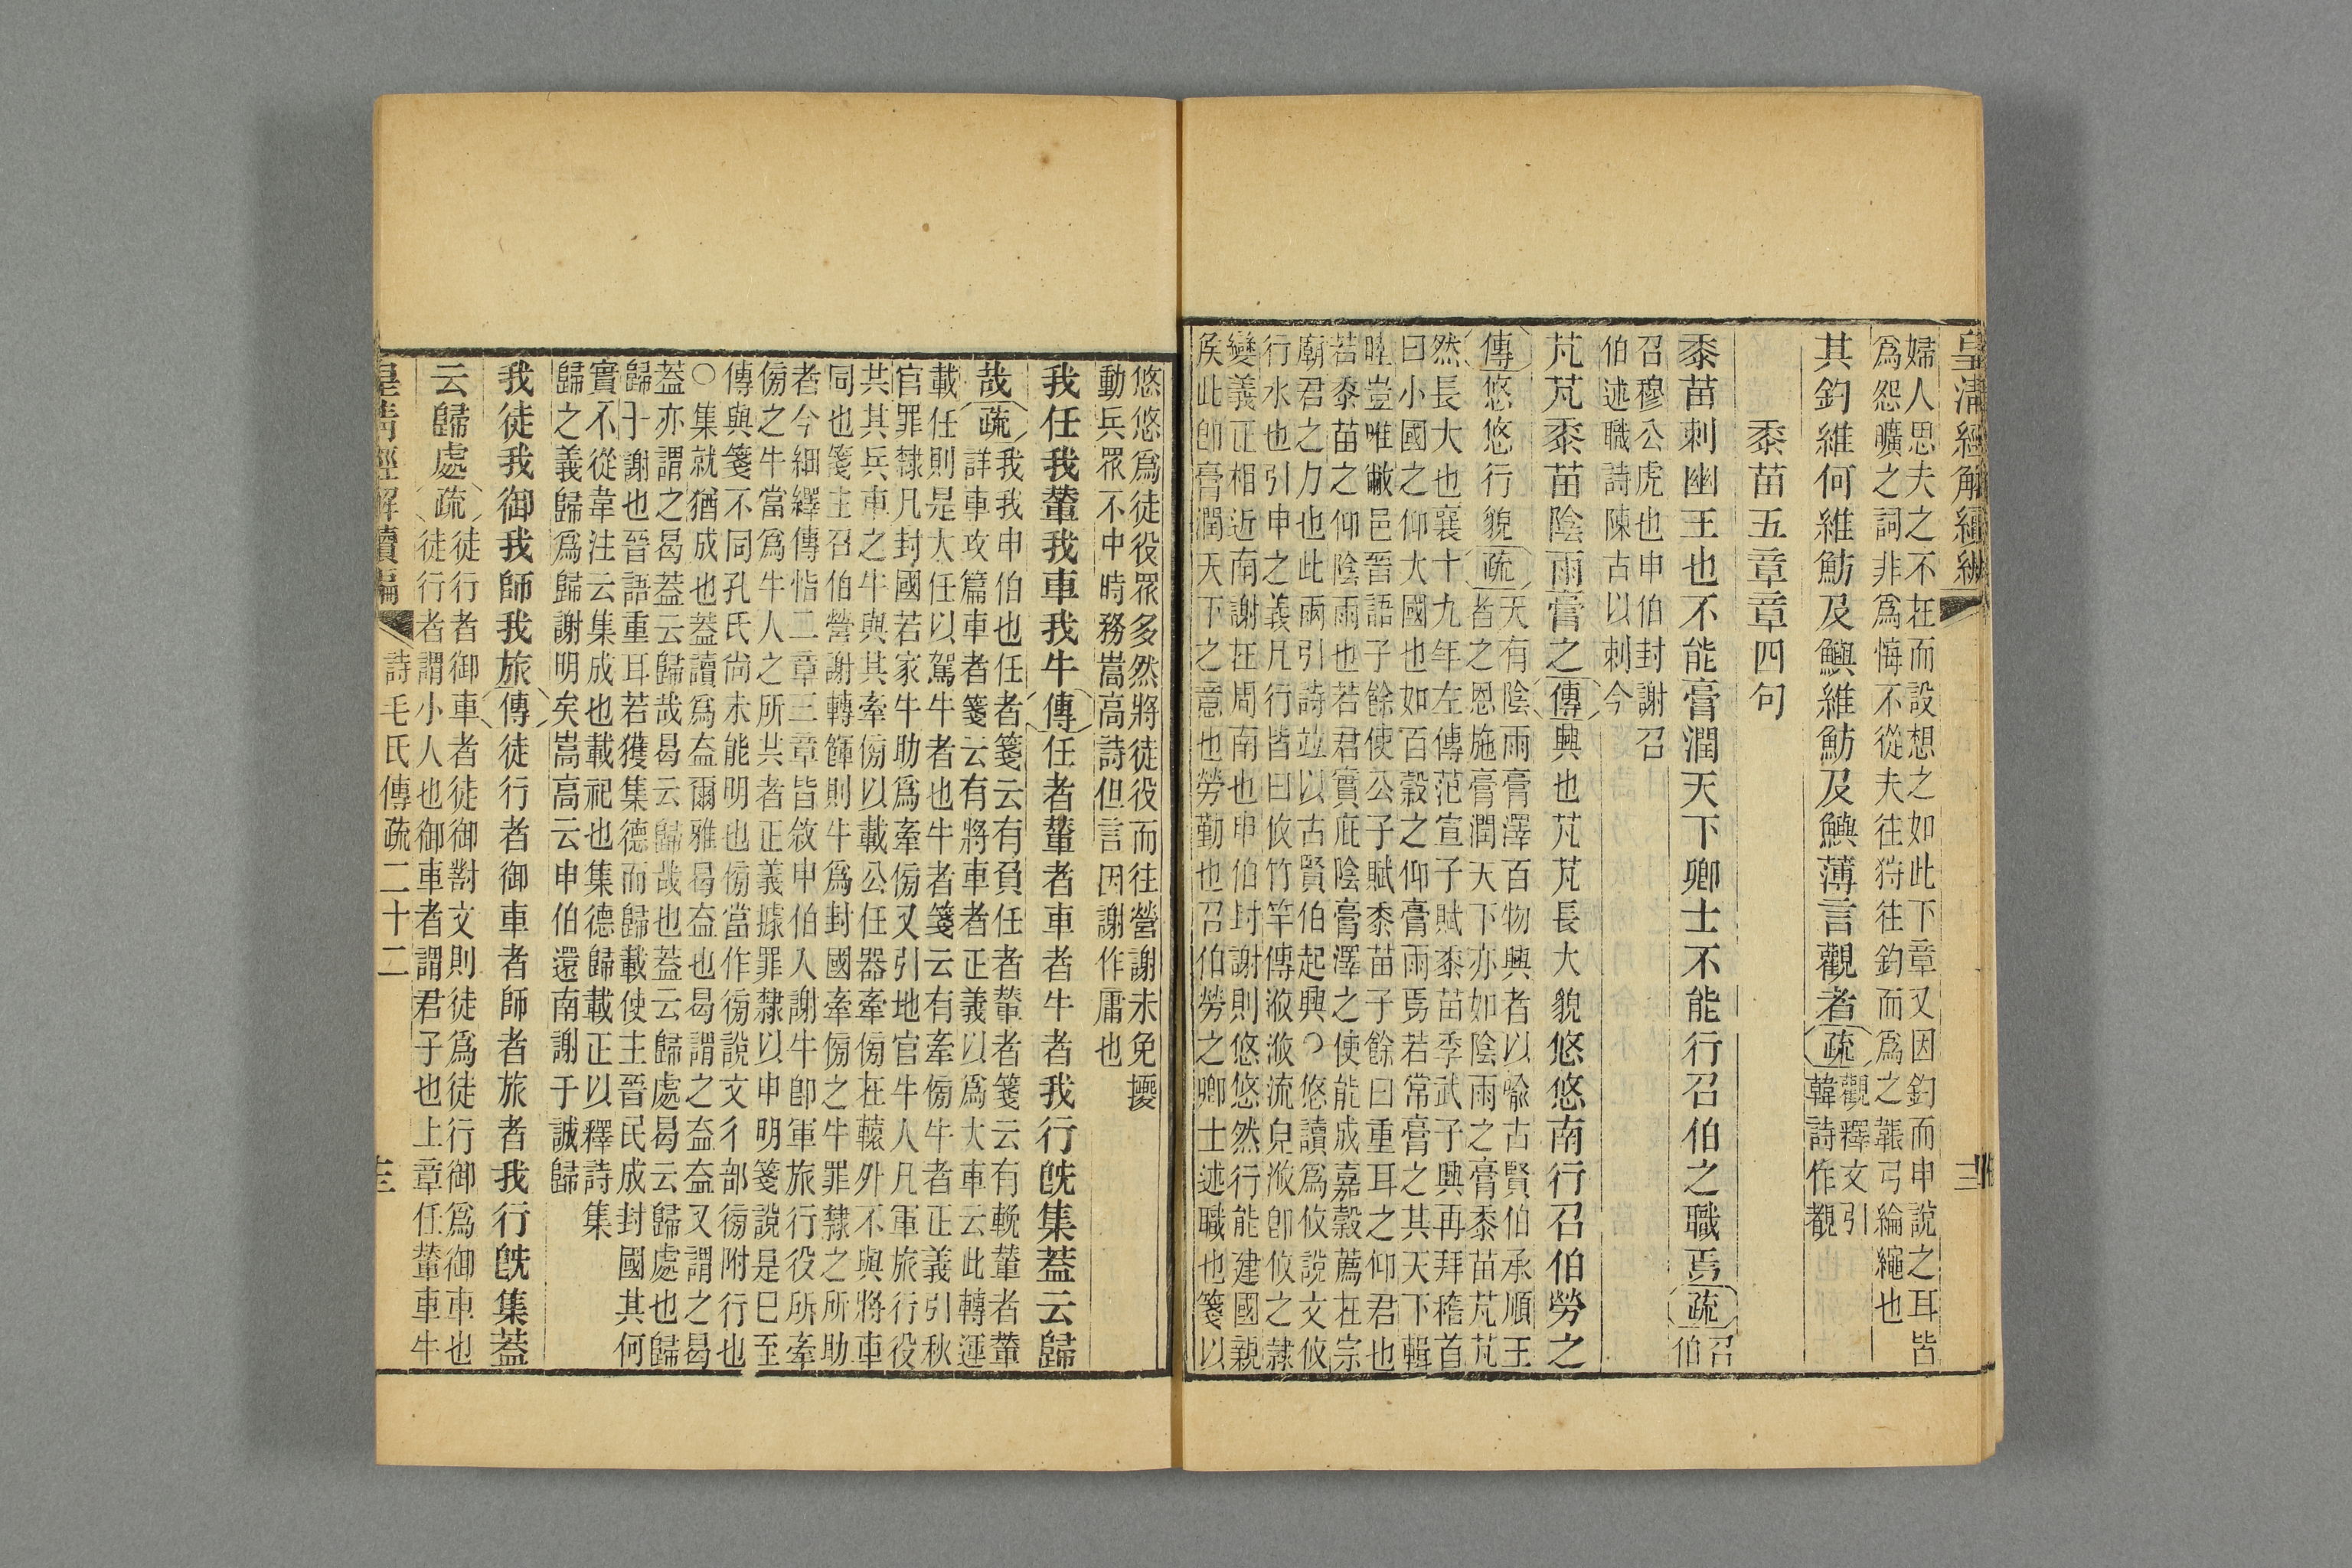 皇清經解續編
婦人思夫之不在而設想之如此下章又因釣而申說之耳皆
爲怨曠之詞非爲悔不從夫往狩往釣而爲之韔弓綸繩也
其釣維何維魴及鱮維魴及鱮薄言觀者疏觀釋文引
韓詩作覩
黍苗五章章四句
黍苗刺幽王也不能膏潤天下卿士不能行召伯之職焉疏召
伯
召穆公虎也申伯封謝召
伯述職詩陳古以刺今
芃芃黍苗陰雨膏之傳興也芃芃長大貌悠悠南行召伯勞之
傳悠悠行貌疏天有陰雨膏澤百物興者以喻古賢伯承順王
者之恩施膏潤天下亦如陰雨之膏黍苗芃芃
然長大也襄十九年左傳范宣子賦黍苗季武子興再拜稽首
曰小國之仰大國也如百穀之仰膏雨焉若常膏之其天下輯
睦豈唯敝邑晉語子餘使公子賦黍苗子餘曰重耳之仰君也
若黍苗之仰陰雨也若君實庇陰膏澤之使能成嘉穀薦在宗
廟君之力也此兩引詩竝以古賢伯起興○悠讀爲攸說文攸
行水也引申之義凡行皆曰攸竹竿傳滺滺流皃滺卽攸之隷
變義正相近南謝在周南也申伯封謝則悠悠然行能建國親
矦此卽膏潤天下之意也勞勤也召伯勞之卿士述職也箋以
悠悠爲徒役眾多然將徒役而往營謝未免擾
動兵眾不中時務嵩高詩但言因謝作庸也
我任我輦我車我牛傳任者輦者車者牛者我行旣集蓋云歸
哉疏我我申伯也任者箋云有負任者輦者箋云有輓輦者輦
詳車攻篇車者箋云有將車者正義以爲大車云此轉運
載任則是大任以駕牛者也牛者箋云有牽傍牛者正義引秋
官罪隸凡封國若家牛助爲牽傍又引地官牛人凡軍旅行役
共其兵車之牛與其牽傍以載公任器牽傍在轅外不與將車
同也箋主召伯營謝轉餫則牛爲封國牽傍之牛罪隸之所助
者今細繹傳恉二章三章皆敘申伯入謝牛卽軍旅行役所牽
傍之牛當爲牛人之所共者正義據罪隸以申明箋說是巳至
傳與箋不同孔氏尚未能明也傍當作徬說文彳部徬附行也
○集就猶成也蓋讀爲盇爾雅曷盇也曷謂之盇盇又謂之曷
蓋亦謂之曷蓋云歸哉曷云歸哉也蓋云歸處曷云歸處也歸
歸于謝也晉語重耳若獲集德而歸載使主晉民成封國其何
實不從韋注云集成也載祀也集德歸載正以釋詩集
歸之義歸爲歸謝明矣嵩高云申伯還南謝于誠歸
我徒我御我師我旅傳徒行者御車者師者旅者我行旣集蓋
云歸處疏徒行者御車者徒御對文則徒爲徒行御爲御車也
徒行者謂小人也御車者謂君子也上章任輦車牛
皇清經解續編
詩毛氏傳疏二十二